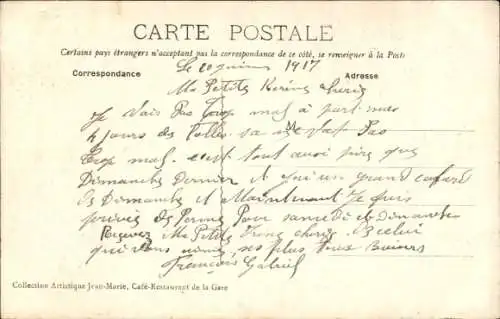 CARTE POSTALE
Certains pays étrangers n'acceptant pas la correspondance de ce côté, se renseigner à la Poste
Correspondance
Adresse
Le 20 juin 1917
Ma Petite chérie
Je vais Pas trop mal à part mes
4 jours de va Pas
trop mal. c'est tout aussi pire que
Dimanche Dernier et un grand cafard
Dimanche et Maintenant Je suis
privé de Perme Pour samedi et dimanche
Recevez Ma Petite chérie De celui
qui vous aime, ses plus Doux Baisers
François Gabriel
Collection Artistique Jean-Marie, Café-Restaurant de la Gare